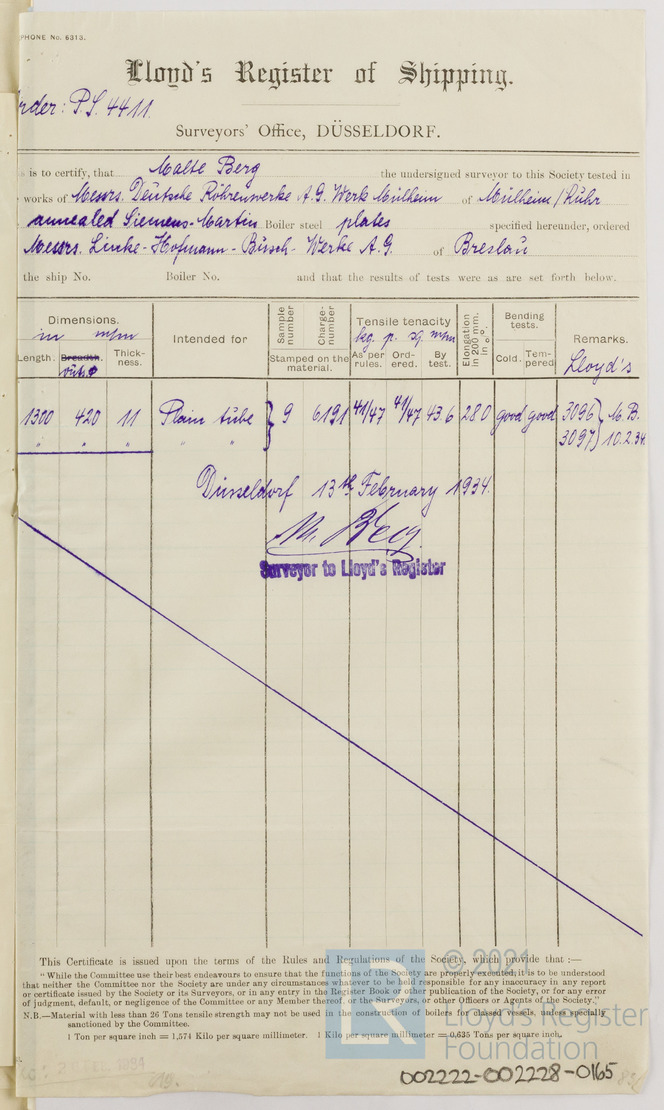 PHONE No. 6313.
Lloyd's Register of Shipping.
rder: P.S. 4411.
Surveyors' Office, DÜSSELDORF.
is to certify, that Malte Berg the undersigned surveyor to this Society tested in
works of Messrs. Deutsche Röhrenwerke A.G. Werk Mülheim of Mülheim/Ruhr
annealed Siemens-Martin Boiler steel plates specified hereunder, ordered
Messrs. Linke-Hofmann-Busch-Werke A.G. of Breslau
the ship No. Boiler No. and that the results of tests were as are set forth below.
Dimensions. in m/m
Length. Breadth. outs. φ Thick-ness.
Intended for
Sample number Charge-number
Stamped on the material.
Tensile tenacity
kg. p. sq. m/m
As per rules. Ord-ered. By test.
Elongation in 200 mm. in %.
Bending tests.
Cold. Tem-pered
Remarks.
Lloyd's
1300 420 11 Plain tube } 9 6191 41/47 41/47 43.6 28.0 good good 3096 } M.B.
" " " " " 3097 } 10.2.34.
Düsseldorf 13th February 1934.
M. Berg
Surveyor to Lloyd's Register
This Certificate is issued upon the terms of the Rules and Regulations of the Society, which provide that :—
"While the Committee use their best endeavours to ensure that the functions of the Society are properly executed, it is to be understood
that neither the Committee nor the Society are under any circumstances whatever to be held responsible for any inaccuracy in any report
or certificate issued by the Society or its Surveyors, or in any entry in the Register Book or other publication of the Society, or for any error
of judgment, default, or negligence of the Committee or any Member thereof, or the Surveyors, or other Officers or Agents of the Society."
N.B.—Material with less than 26 Tons tensile strength may not be used in the construction of boilers for classed vessels, unless specially
sanctioned by the Committee.
1 Ton per square inch = 1,574 Kilo per square millimetre. 1 Kilo per square millimetre = 0,635 Tons per square inch.
© 2021
Lloyd's Register
Foundation
002222-002228-0165